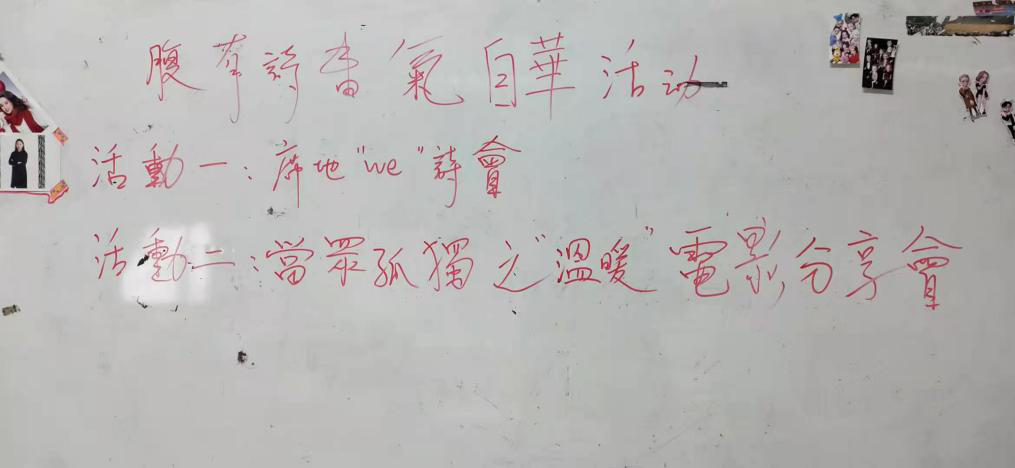 腹有詩書氣自華活动
活動一：席地"we"詩會
活動二：當眾孤獨之"溫暖"電影分享會